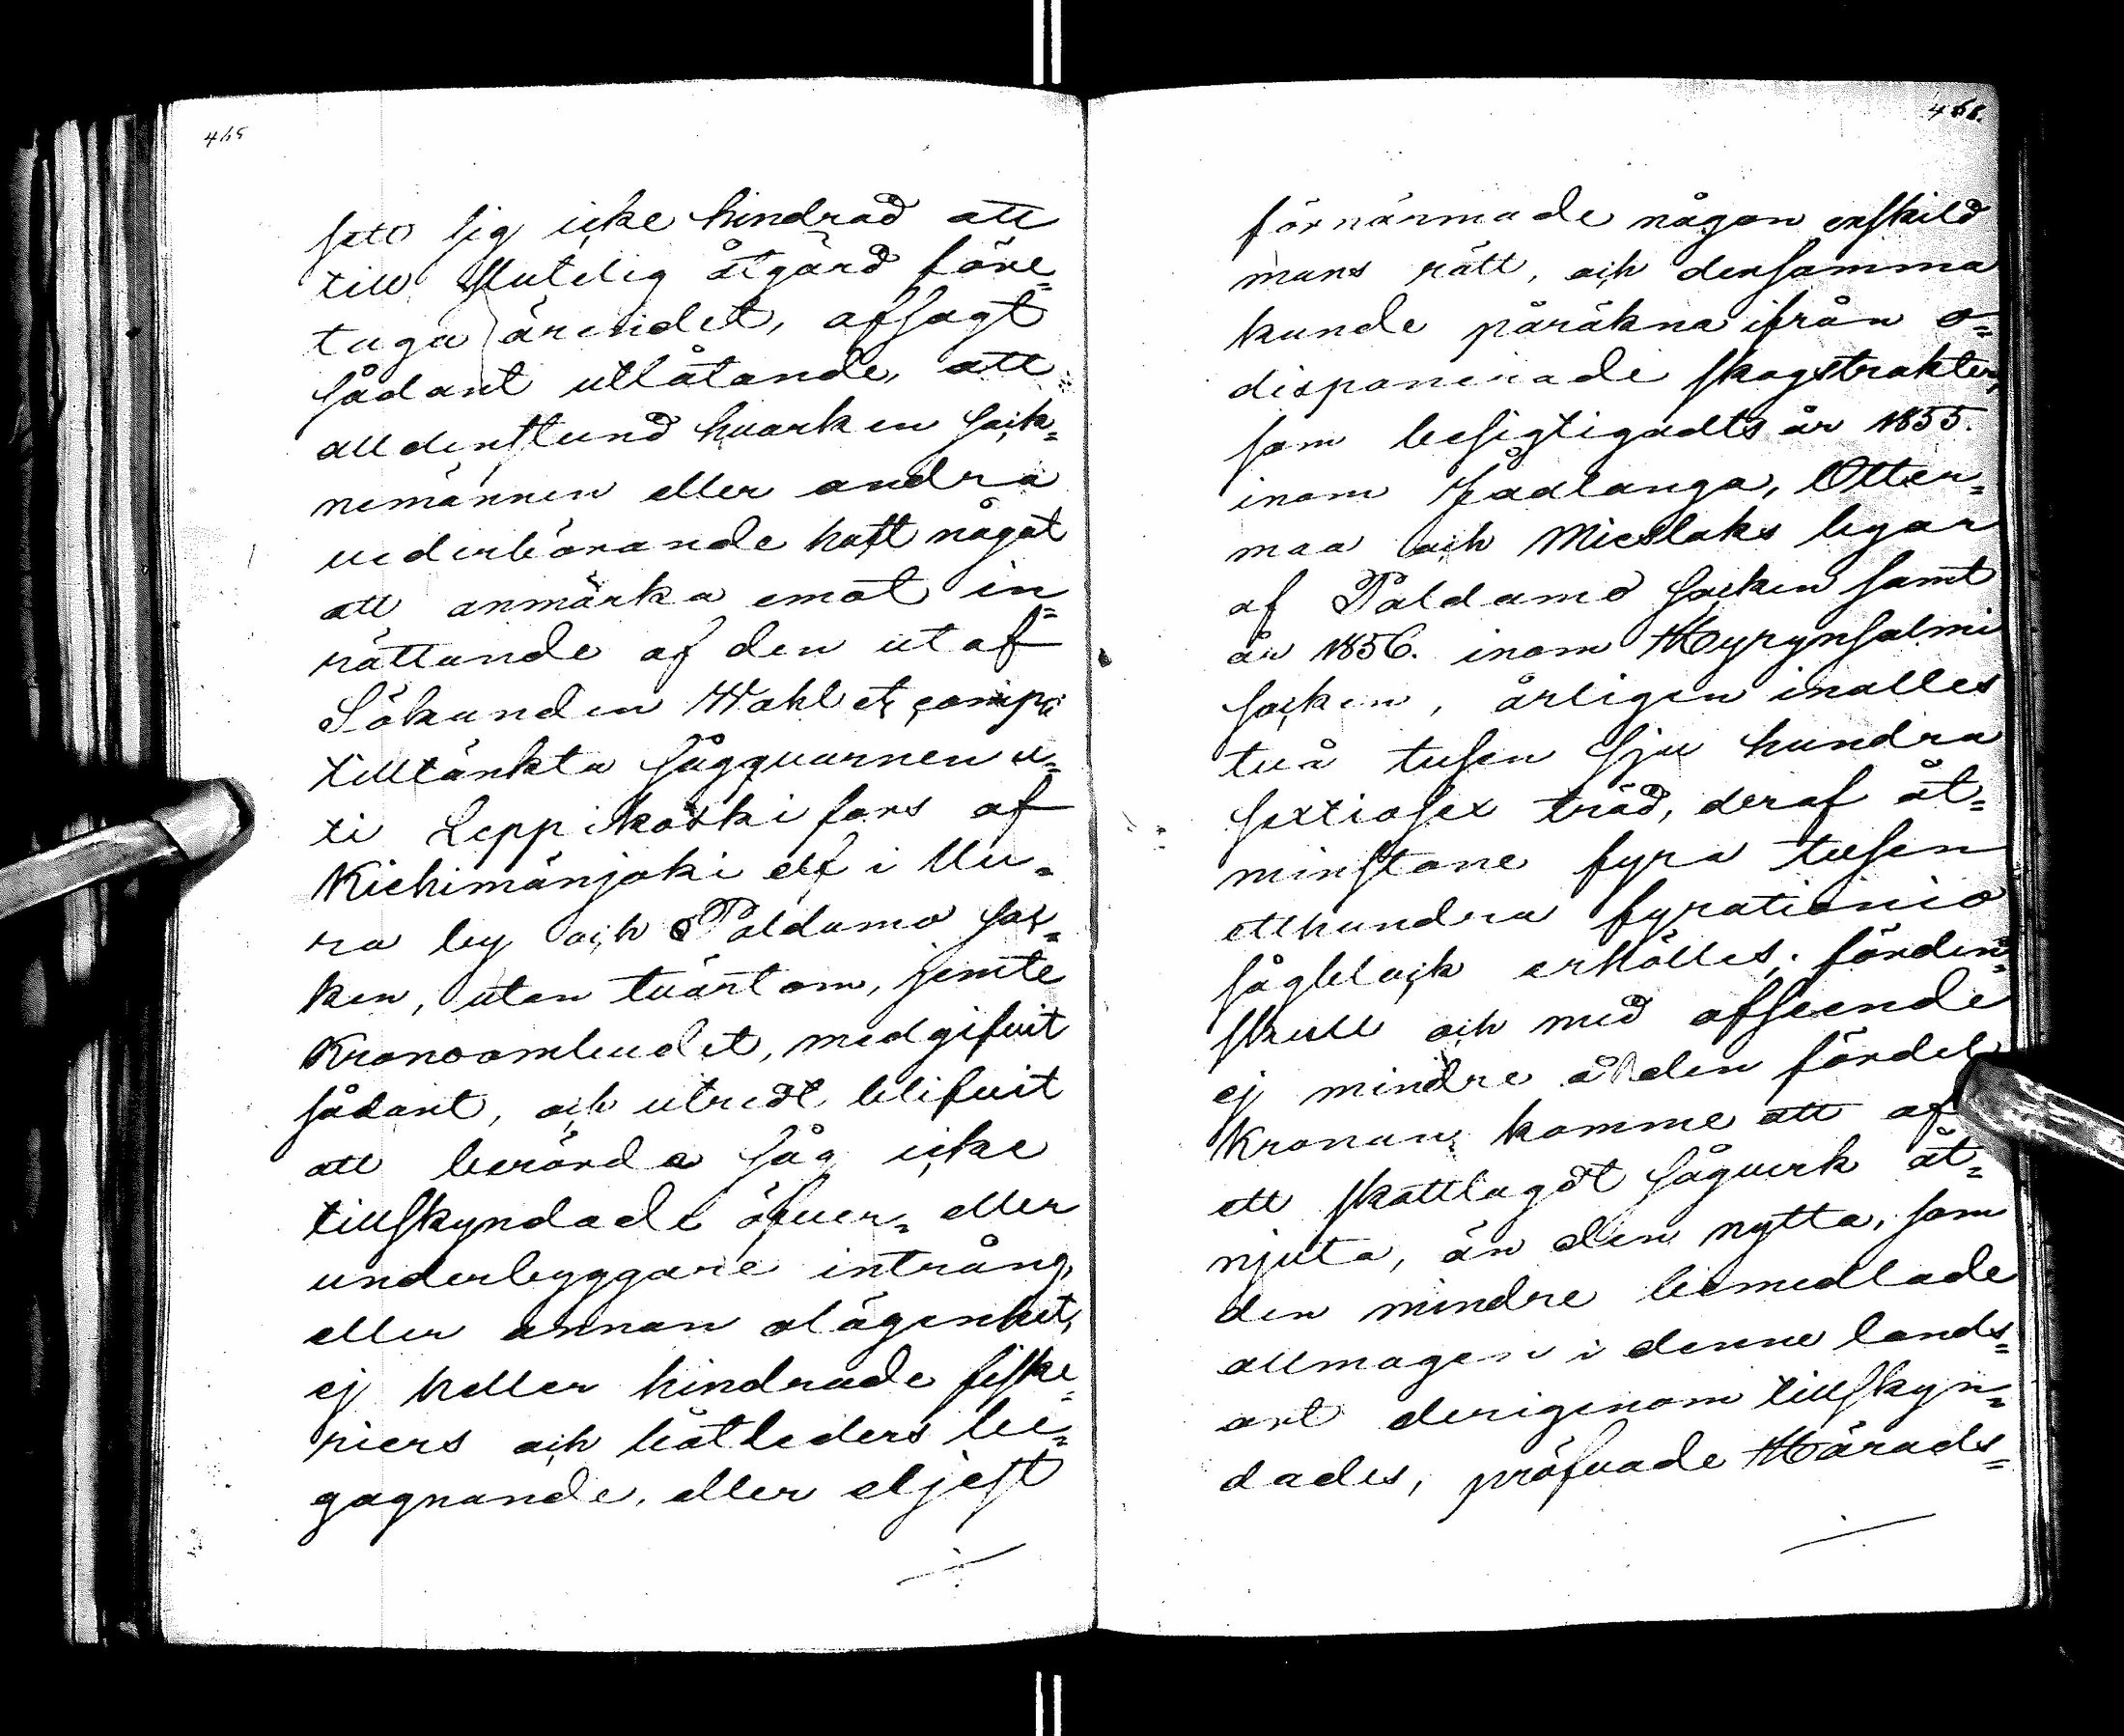 465
sett sig icke hindrad att
till slutelig åtgärd före¬
taga ärendet, afsagt
sådant utlåtande, att
alldenstund hvarken sock¬
nemännen eller andra
vederbörande haft något
att anmärka emot in¬
rättande af den utaf
Sökanden Wahl et comp:
tilltänkta sågqvarnen u¬
ti Leppikoski fors af
Kiehimänjoki elf i Uu¬
ra by och Paldamo soc¬
ken, utan tvärtom, jemte
Kronoombudet, medgifvit
sådant, och utredt blifvit
att berörda såg icke
tillskyndade öfver- eller
underbyggare intrång,
eller annan olägenhet,
ej heller hindrade fiske¬
riers och båtleders be¬
gagnande, eller eljest
466.
förnärmade någon enskild
mans rätt, och densamma
kunde påräkna ifrån o¬
disponerade skogstrakter,
som besigtigadts år 1855.
inom Jaalanga, Otter¬
maa och Mieslaks byar
af Paldamo socken samt
år 1856. inom Hyrynsalmi
socken, årligen inalles
två tusen sju hundra
sextiosex träd, deraf åt¬
minstone fyra tusen
etthundra fyrationio
sågblock erhölles; förden¬
skull och med afseende
ej mindre å den fördel
Kronan komme att af
ett skattlagdt sågverk åt¬
njuta, än den nytta, som
den mindre bemedlade
allmogen i denne lands¬
ort derigenom tillskyn¬
dades, pröfvade Härads¬